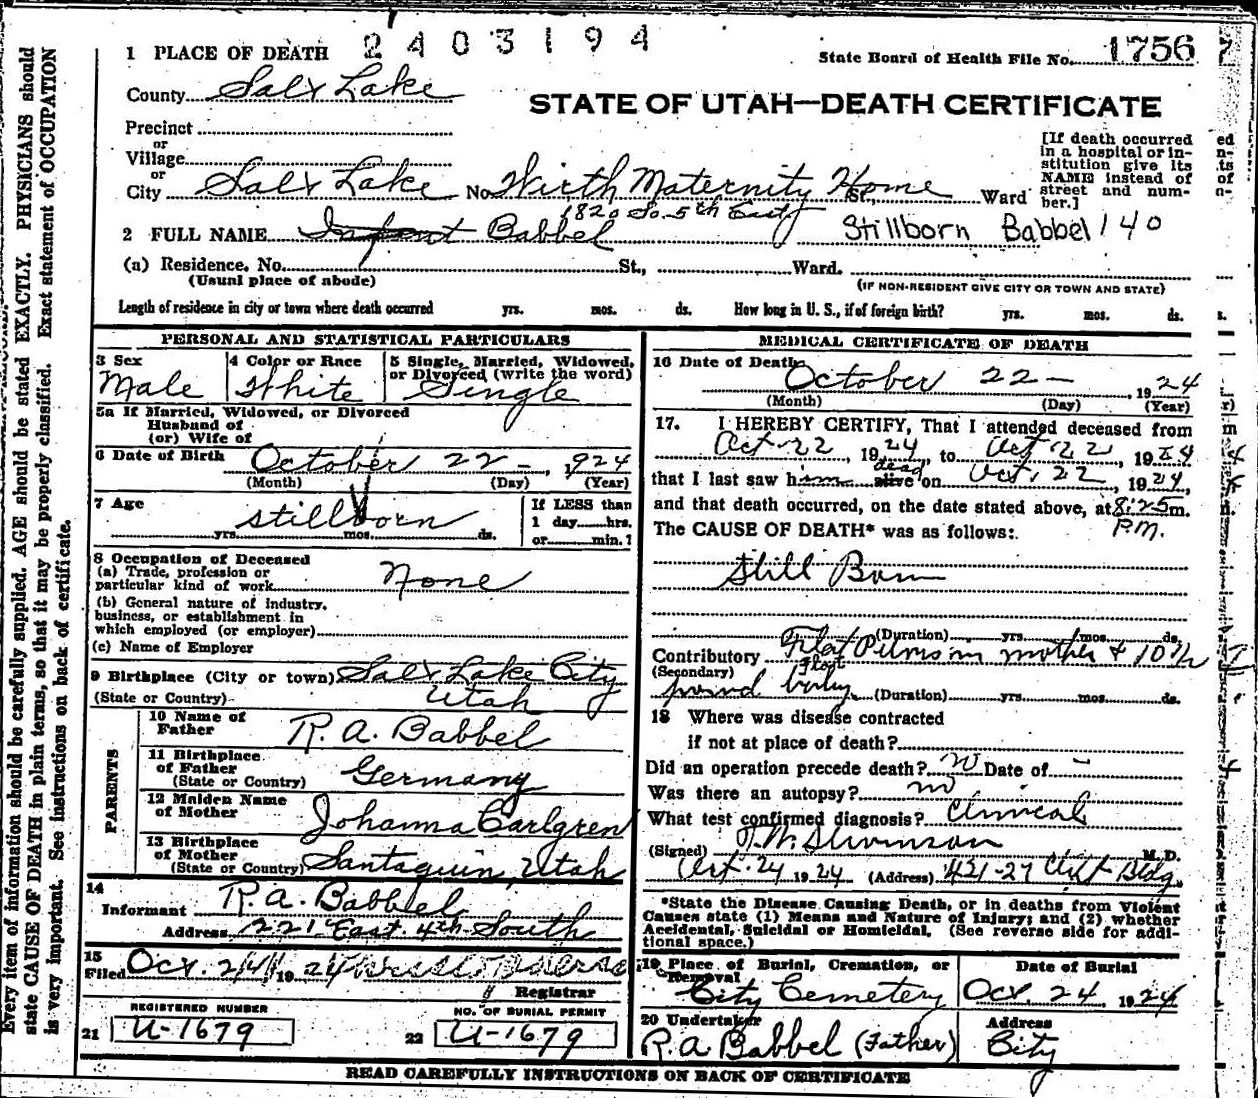 1 PLACE OF DEATH 2403194 State Board of Health File No. 1756
County Salt Lake
STATE OF UTAH—DEATH CERTIFICATE
Precinct
or
Village
or
City Salt Lake No. Wirth Maternity Home St., Ward
[If death occurred
in a hospital or in-
stitution give its
NAME instead of
street and num-
ber.]
1820 So. 5th East
2 FULL NAME Infant Babbel Stillborn Babbel 140
(a) Residence. No. St., Ward.
(Usual place of abode) (IF NON-RESIDENT GIVE CITY OR TOWN AND STATE)
Length of residence in city or town where death occurred yrs. mos. ds. How long in U. S., if of foreign birth? yrs. mos. ds.
PERSONAL AND STATISTICAL PARTICULARS
3 Sex 4 Color or Race 5 Single, Married, Widowed,
or Divorced (write the word)
Male White Single
5a If Married, Widowed, or Divorced
Husband of
(or) Wife of
6 Date of Birth October 22 - , 1924
(Month) (Day) (Year)
7 Age stillborn
yrs. mos. ds.
If LESS than
1 day......hrs.
or......min.?
8 Occupation of Deceased
(a) Trade, profession or
particular kind of work None
(b) General nature of industry,
business, or establishment in
which employed (or employer)
(c) Name of Employer
9 Birthplace (City or town) Salt Lake City
(State or Country) Utah
PARENTS
10 Name of
Father R. A. Babbel
11 Birthplace
of Father
(State or Country) Germany
12 Maiden Name
of Mother Johanna Carlgren
13 Birthplace
of Mother
(State or Country) Santaquin, Utah
14
Informant R. A. Babbel
Address 221 East 4th South
15
Filed Oct. 24, 1924
Registrar
REGISTERED NUMBER NO. OF BURIAL PERMIT
21 U-1679 22 U-1679
MEDICAL CERTIFICATE OF DEATH
16 Date of Death
October 22 — 1924
(Month) (Day) (Year)
17. I HEREBY CERTIFY, That I attended deceased from
Oct-22, 1924, to Oct 22, 1924
that I last saw him alive dead on Oct. 22, 1924,
and that death occurred, on the date stated above, at 8:25 m.
P.M.
The CAUSE OF DEATH* was as follows:
Still Born
(Duration) yrs. mos. ds.
Contributory Flat Pelvis in mother & 10 1/2
(Secondary)
(Duration) yrs. mos. ds.
18 Where was disease contracted
if not at place of death?
Did an operation precede death? no Date of -
Was there an autopsy? no
What test confirmed diagnosis? Clinical
(Signed) M.D.
Oct. 24 1924 (Address) 421-27 Clift Bldg.
*State the Disease Causing Death, or in deaths from Violent
Causes state (1) Means and Nature of Injury; and (2) whether
Accidental, Suicidal or Homicidal. (See reverse side for addi-
tional space.)
19 Place of Burial, Cremation, or
Removal
City Cemetery
Date of Burial
Oct. 24 1924
20 Undertaker
R. A. Babbel (Father)
Address
City
READ CAREFULLY INSTRUCTIONS ON BACK OF CERTIFICATE
Every item of information should be carefully supplied. AGE should be stated EXACTLY. PHYSICIANS should
state CAUSE OF DEATH in plain terms, so that it may be properly classified. Exact statement of OCCUPATION
is very important. See instructions on back of certificate.